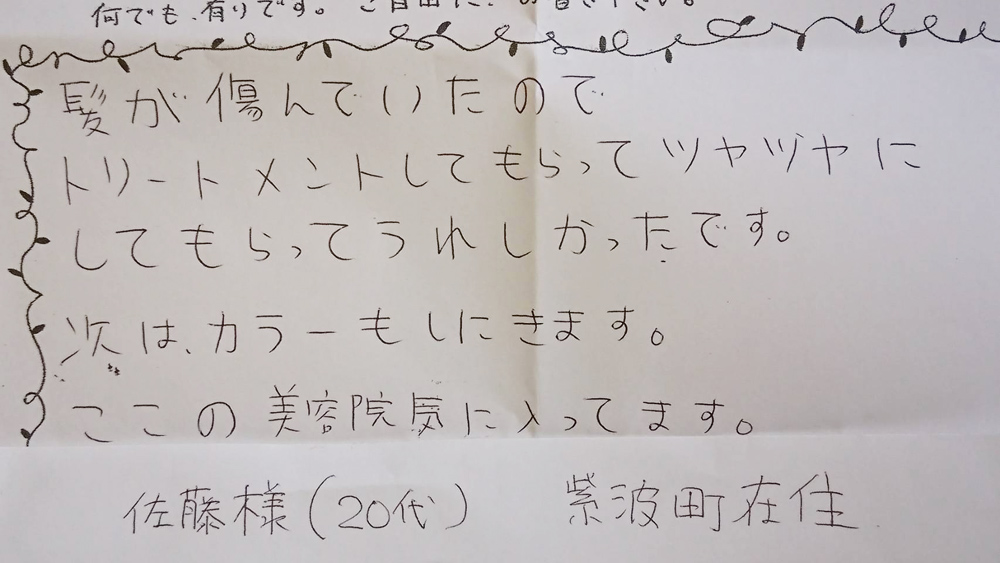 何でも、有りです。ご自由に
髪が傷んでいたので
トリートメントしてもらってツヤヅヤに
してもらってうれしかったです。
次は、カラーもしにきます。
ここの美容院気に入ってます。
佐藤様(20代) 紫波町在住